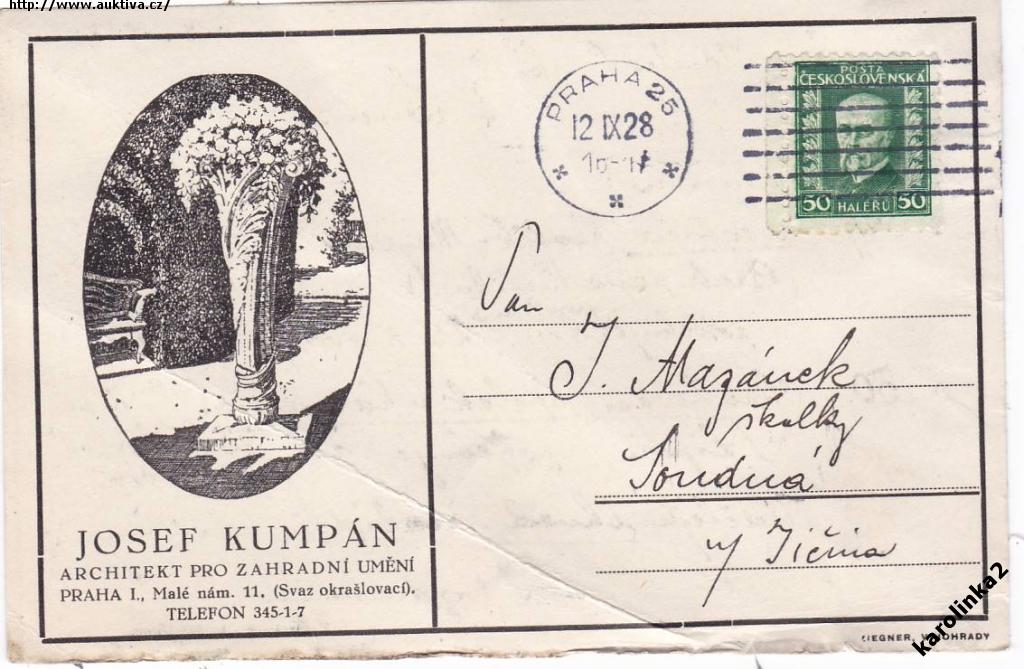 http://www.auktiva.cz/
PRAHA 25
12 IX 28
POSTA
ČESKOSLOVENSKÁ
50 HALÉŘŮ 50
Pan
J. Mazánek
školky
Soudná
u Jičína
JOSEF KUMPÁN
ARCHITEKT PRO ZAHRADNÍ UMĚNÍ
PRAHA I., Malé nám. 11, (Svaz okrašlovací).
TELEFON 345-1-7
karolinka2